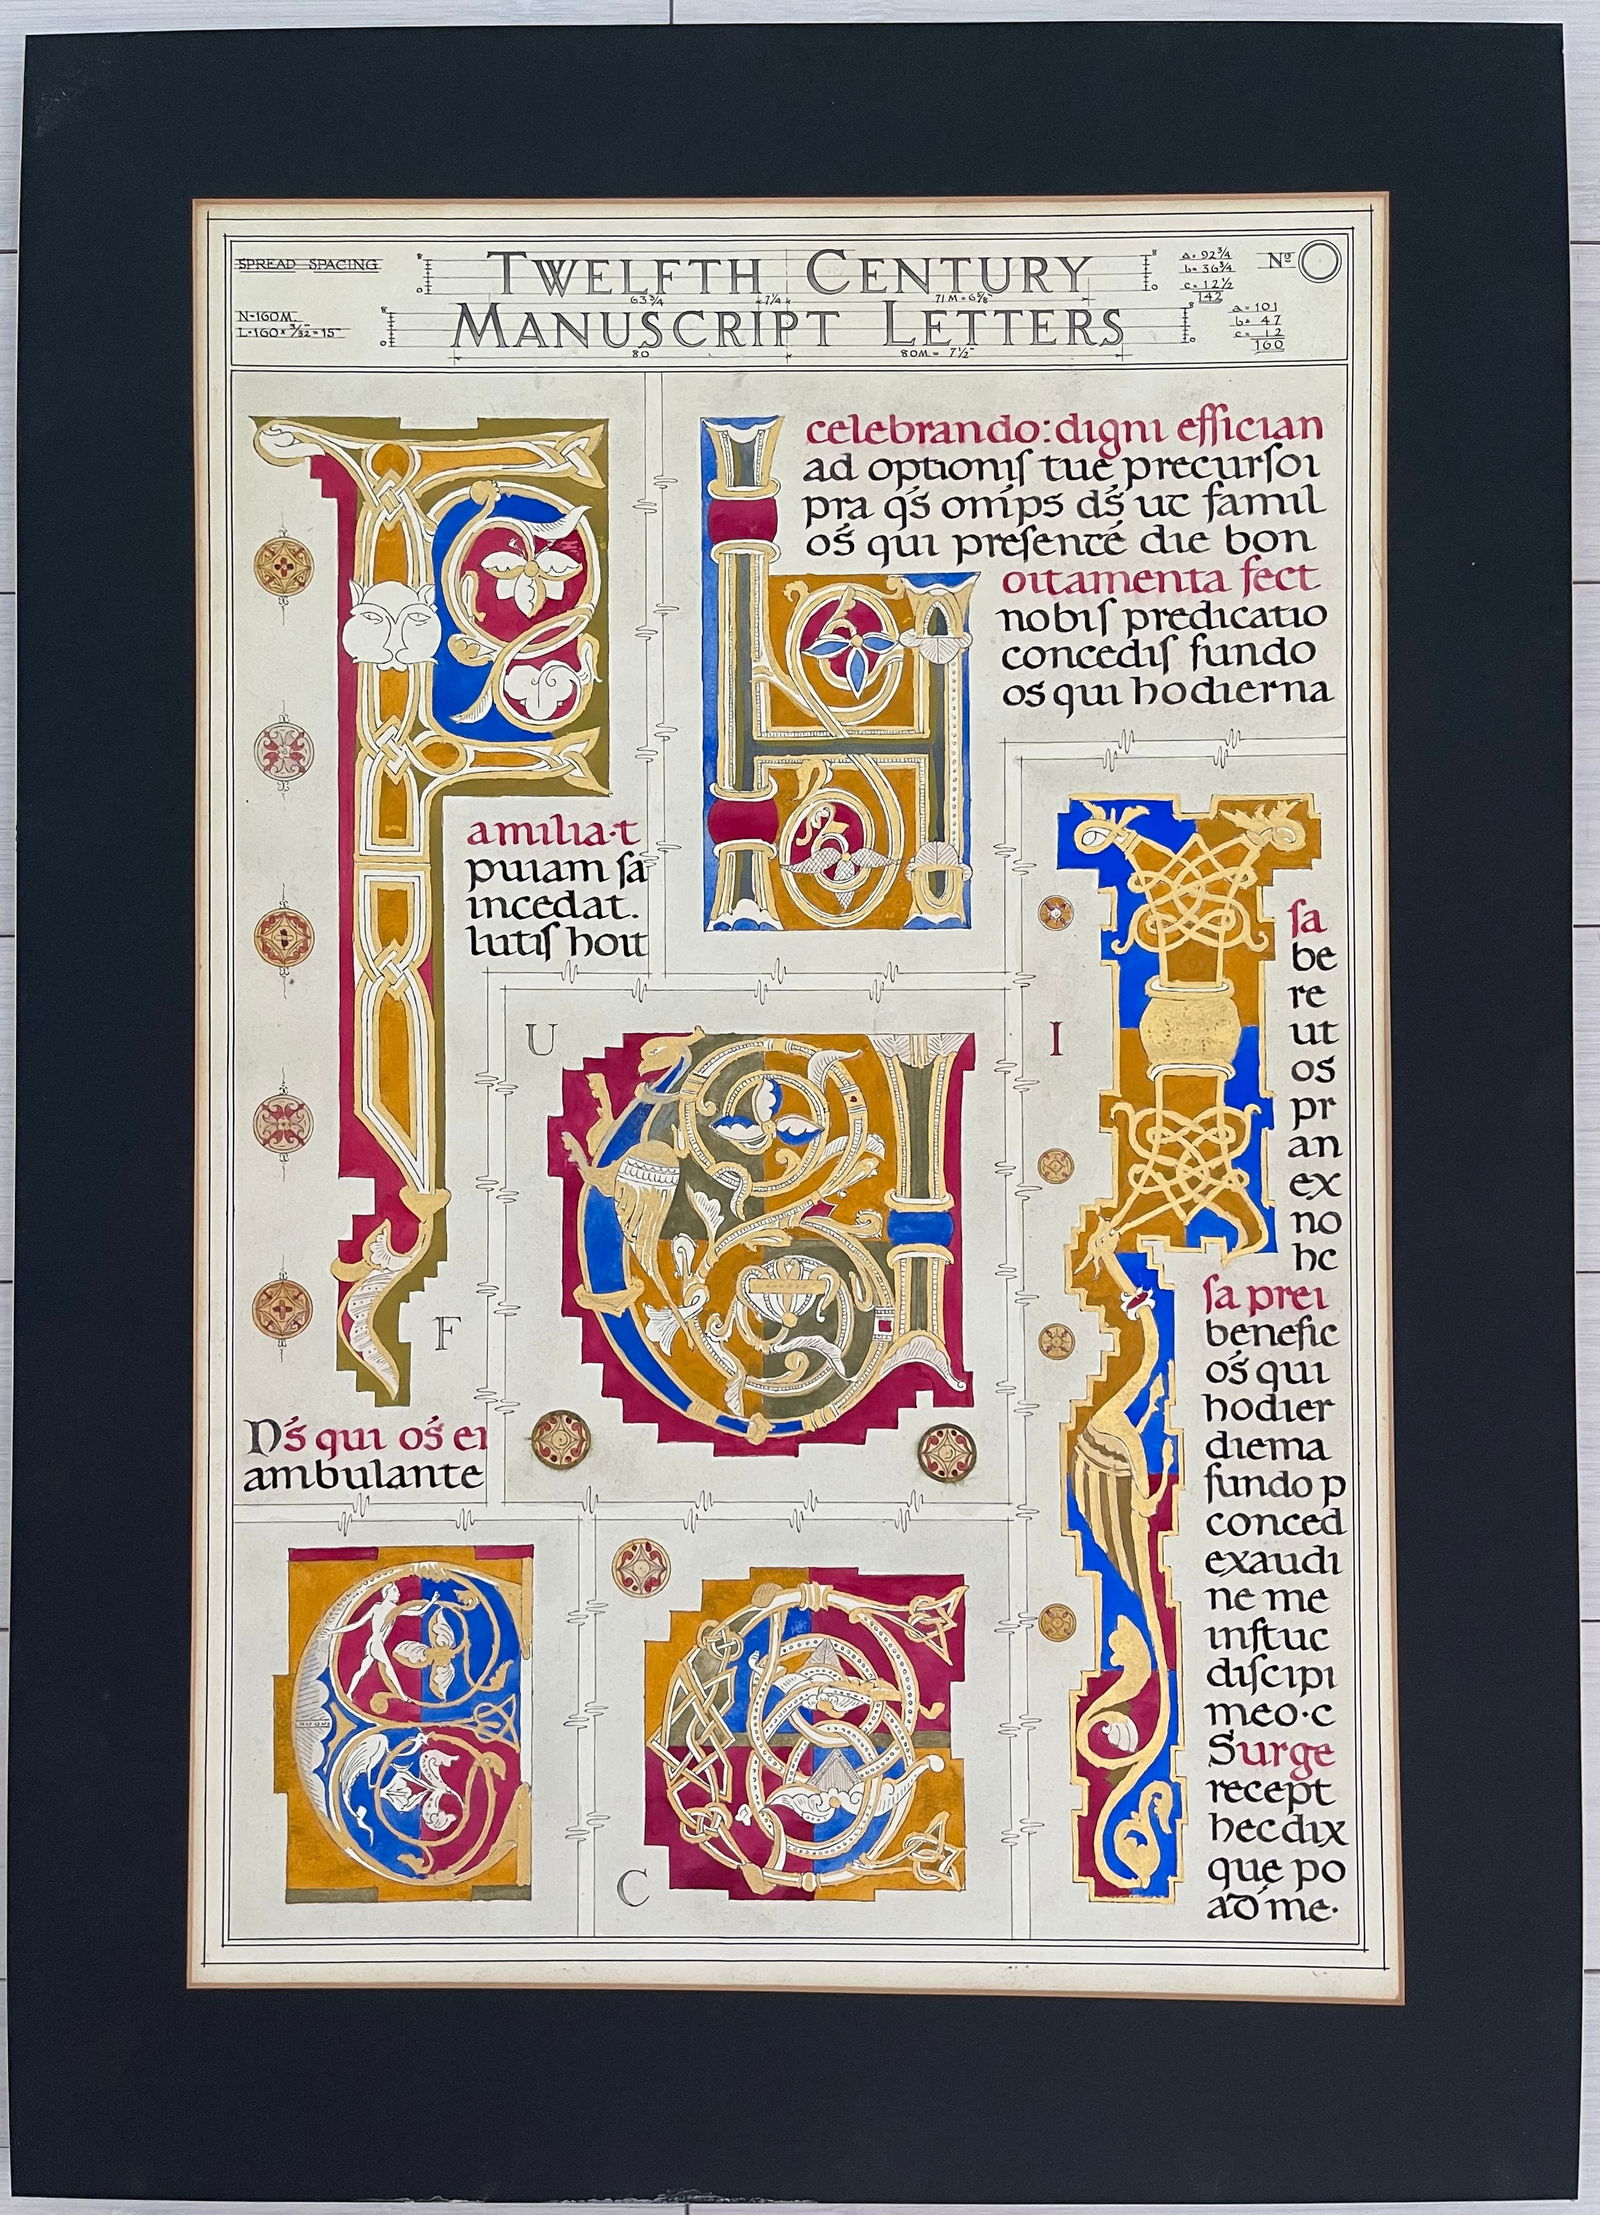 SPREAD SPACING
TWELFTH CENTURY
63 3/4
7 1/4
71 M = 6 5/8"
a = 92 3/4
b = 36 3/4
c = 12 1/2
142
Nº
N=160M
L=160 × 3/32 = 15"
MANUSCRIPT LETTERS
80
80M = 7 1/2"
a = 101
b = 47
c = 12
160
amilia·t
puiam sa
incedat.
lutiſ hoit
F
Dś qui oś ei
ambulante
celebrando: digni effician
ad optioniſ tue precurſoi
pra qś omips dś ut famil
oś qui preſenté die bon
oitamenta fect
nobiſ predicatio
concediſ fundo
os qui hodierna
U
I
ſa
be
re
ut
os
pr
an
ex
no
hc
ſa prei
benefic
oś qui
hodier
diema
fundo p
conced
exaudi
ne me
inſtuc
diſcipi
meo·c
Surge
recept
hec dix
que po
ad me·
C